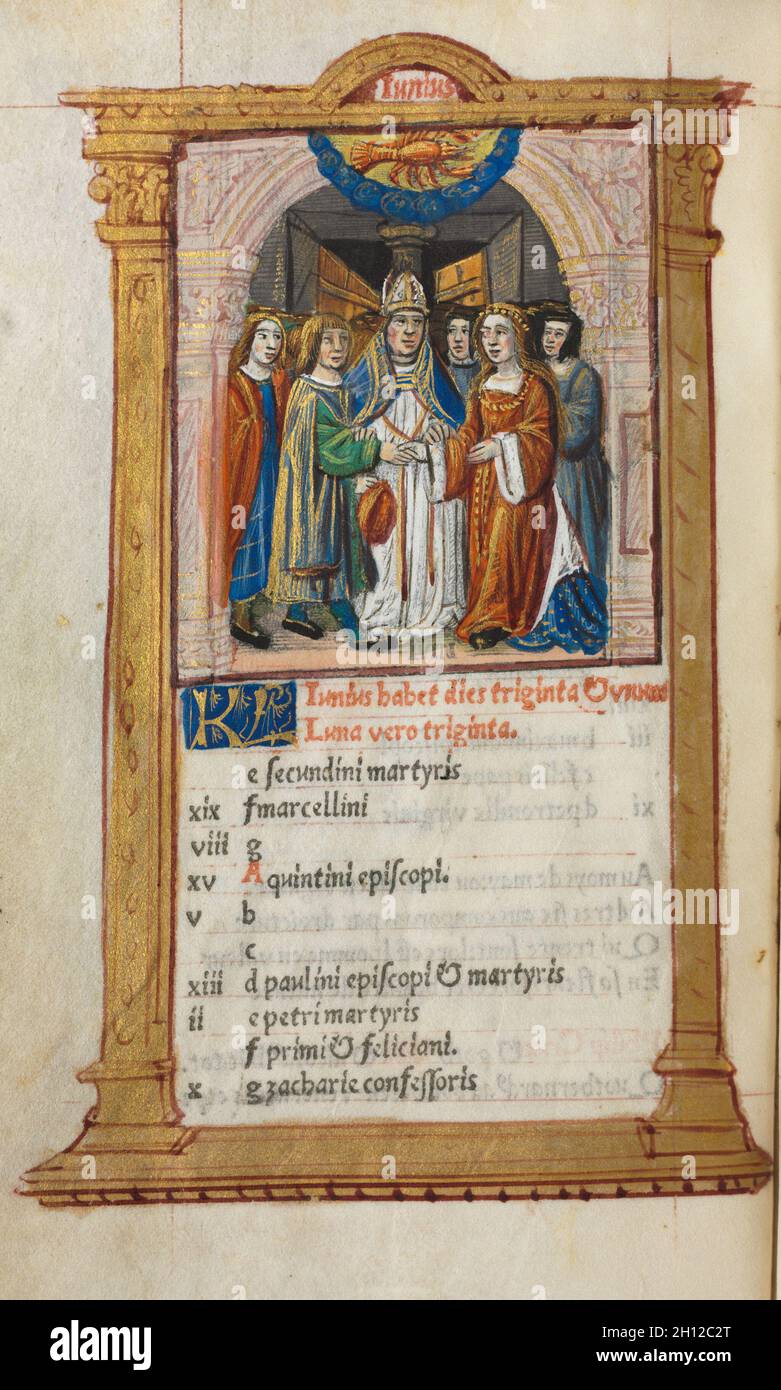 Iunius
KL Iunius habet dies triginta &
Luna vero triginta.
e ſecundini martyris
xix f marcellini
viii g
xv A quintini epiſcopi.
v b
c
xiii d paulini epiſcopi & martyris
ii e petri martyris
f primi & feliciani.
x g zacharie confeſſoris
alamy
Image ID: 2H12C2T
www.alamy.com